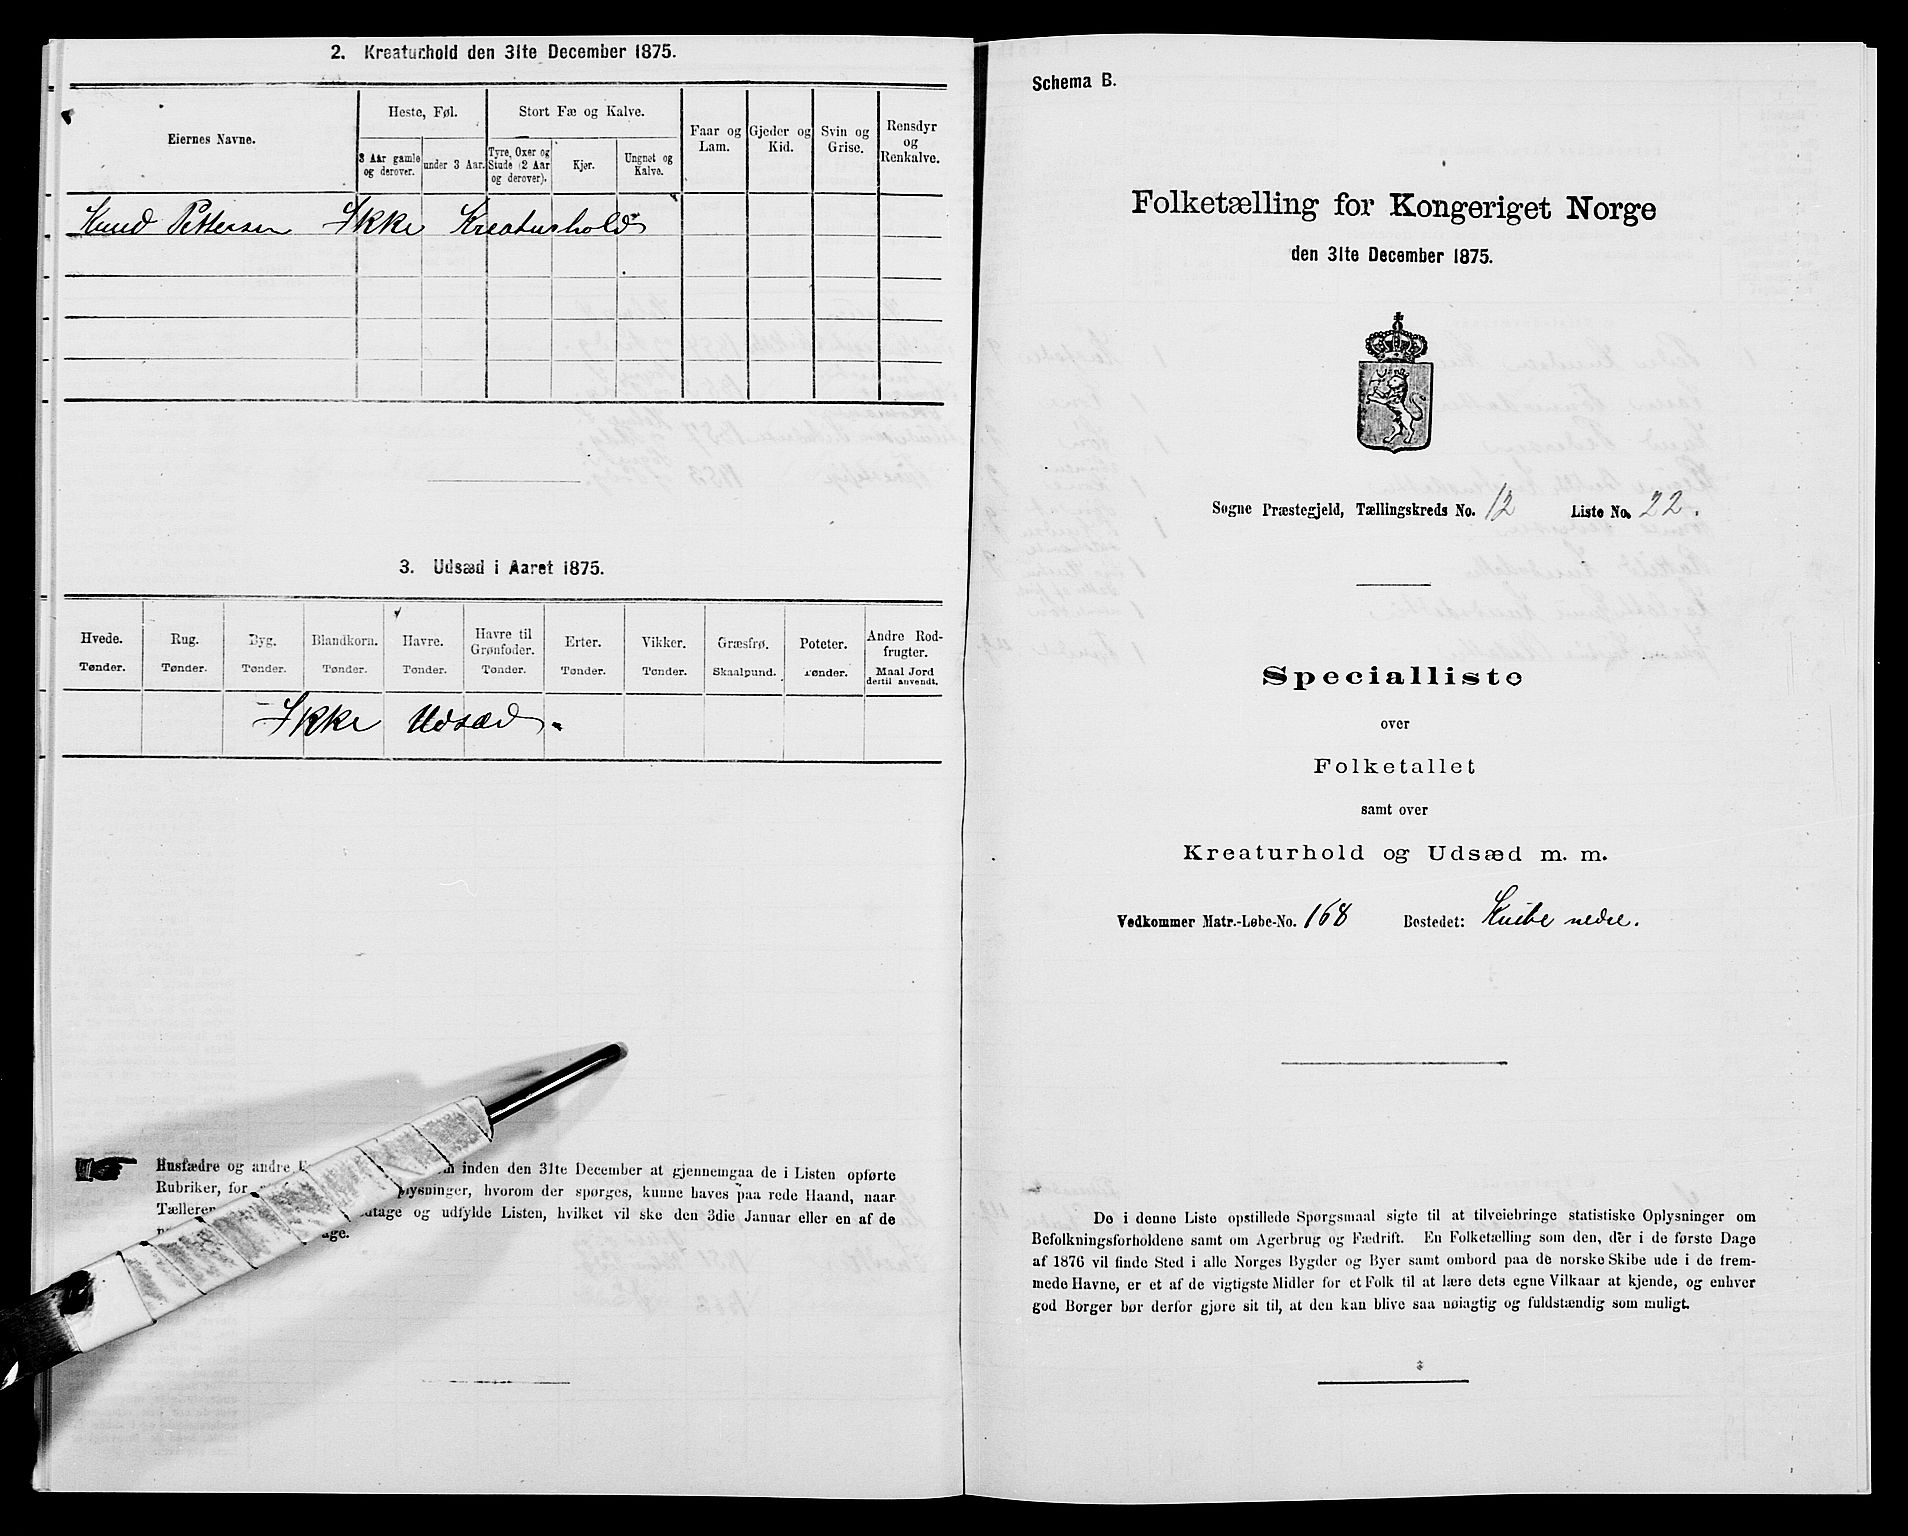 2. Kreaturhold den 31te December 1875.
Eiernes Navne.
Heste, Føl.
3 Aar gamle og derover.
under 3 Aar.
Stort Fæ og Kalve.
Tyre, Oxer og Stude (2 Aar og derover).
Kjør.
Ungnøt og Kalve.
Faar og Lam.
Gjeder og Kid.
Svin og Grise.
Rensdyr og Renkalve.
Knud Pettersen Ikke Kreaturhold
3. Udsæd i Aaret 1875.
Hvede. Rug. Byg. Blandkorn. Havre. Havre til Grønfoder. Erter. Vikker. Græsfrø. Poteter. Andre Rodfrugter.
Tønder. Tønder. Tønder. Tønder. Tønder. Tønder. Tønder. Tønder. Skaalpund. Tønder. Maal Jord dertil anvendt.
Ikke Udsæd.
Husfædre og andre inden den 31te December at gjennemgaa de i Listen opførte
Rubriker, for plysninger, hvorom der spørges, kunne haves paa rede Haand, naar
Ælleren dtage og udfylde Listen, hvilket vil ske den 3die Januar eller en af de
age.
Schema B.
Folketælling for Kongeriget Norge
den 31te December 1875.
Søgne Præstegjeld, Tællingskreds No. 12 Liste No. 22.
Specialliste
over
Folketallet
samt over
Kreaturhold og Udsæd m. m.
Vedkommer Matr.-Løbe-No. 168 Bostedet: Kvibe nedre.
De i denne Liste opstillede Spørgsmaal sigte til at tilveiebringe statistiske Oplysninger om
Befolkningsforholdene samt om Agerbrug og Fædrift. En Folketælling som den, der i de første Dage
af 1876 vil finde Sted i alle Norges Bygder og Byer samt ombord paa de norske Skibe ude i de frem-
mede Havne, er et af de vigtigste Midler for et Folk til at lære dets egne Vilkaar at kjende, og enhver
god Borger bør derfor gjøre sit til, at den kan blive saa nøiagtig og fuldstændig som muligt.